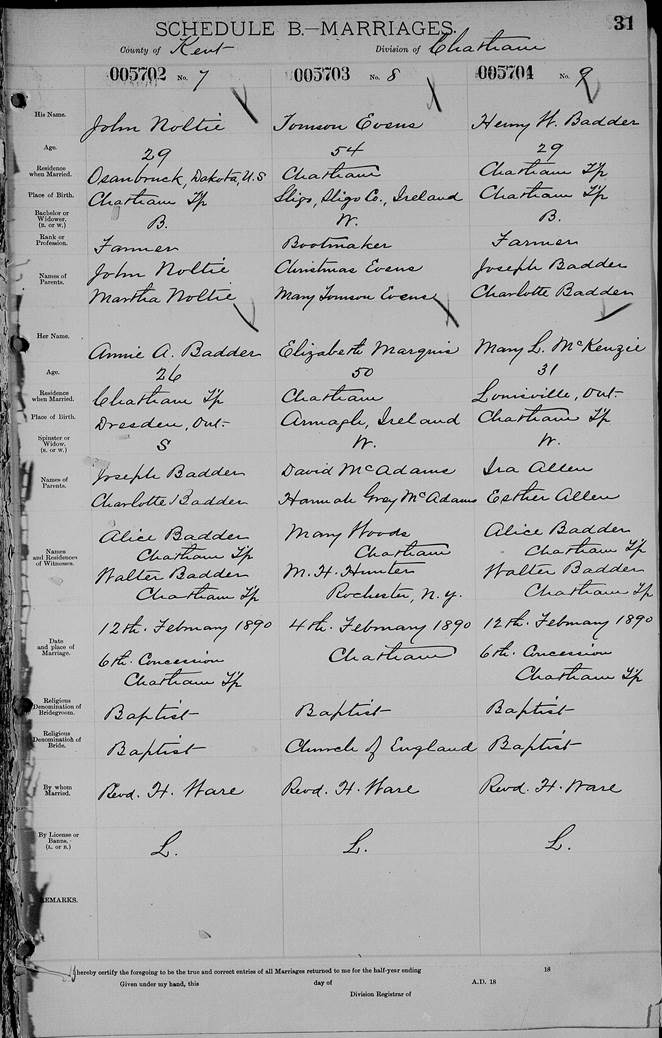 31
SCHEDULE B.—MARRIAGES.
County of Kent Division of Chatham
005702 No. 7 005703 No. 8 005704 No. 9
His Name. John Noltie Tomson Evens Henry W. Badder
Age. 29 54 29
Residence when Married. Osanbruck, Dakota, U.S Chatham Chatham T'p
Place of Birth. Chatham T'p Sligo, Sligo Co., Ireland Chatham T'p
Bachelor or Widower, (B. or W.) B. W. B.
Rank or Profession. Farmer Bootmaker Farmer
Names of Parents. John Noltie Christmas Evens Joseph Badder
Martha Noltie Mary Tomson Evens Charlotte Badder
Her Name. Annie A. Badder Elizabeth Marquis Mary L. McKenzie
Age. 26 50 31
Residence when Married. Chatham T'p Chatham Louisville, Ont.
Place of Birth. Dresden, Ont. Armagh, Ireland Chatham T'p
Spinster or Widow, (S. or W.) S W. W.
Names of Parents. Joseph Badder David McAdams Ira Allen
Charlotte Badder Hannah Grey McAdams Esther Allen
Names and Residences of Witnesses. Alice Badder Mary Woods Alice Badder
Chatham T'p Chatham Chatham T'p
Walter Badder M. H. Hunter Walter Badder
Chatham T'p Rochester, N.y. Chatham T'p
Date and place of Marriage. 12th. February 1890 4th. February 1890 12th. February 1890
6th. Concession Chatham 6th. Concession
Chatham T'p Chatham T'p
Religious Denomination of Bridegroom. Baptist Baptist Baptist
Religious Denomination of Bride. Baptist Church of England Baptist
By whom Married. Revd. H. Ware Revd. H. Ware Revd. H. Ware
By License or Banns, (L. or B.) L. L. L.
REMARKS.
hereby certify the foregoing to be the true and correct entries of all Marriages returned to me for the half-year ending 18
Given under my hand, this day of A.D. 18
Division Registrar of